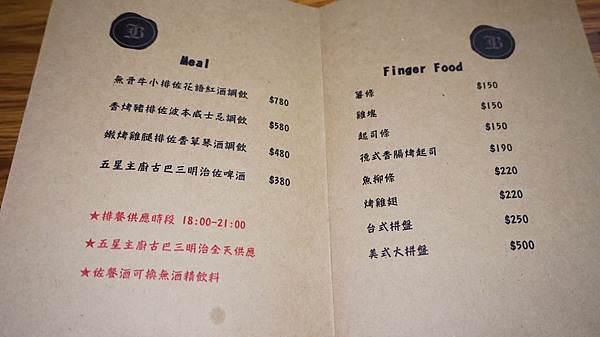 B
Meal
無骨牛小排佐花語紅酒調飲 $780
香烤豬排佐波本威士忌調飲 $580
嫩烤雞腿排佐香草琴酒調飲 $480
五星主廚古巴三明治佐啤酒 $380
★排餐供應時段 18:00-21:00
★五星主廚古巴三明治全天供應
★佐餐酒可換無酒精飲料
B
Finger Food
薯條 $150
雞塊 $150
起司條 $150
德式香腸烤起司 $190
魚柳條 $220
烤雞翅 $220
台式拼盤 $250
美式大拼盤 $500